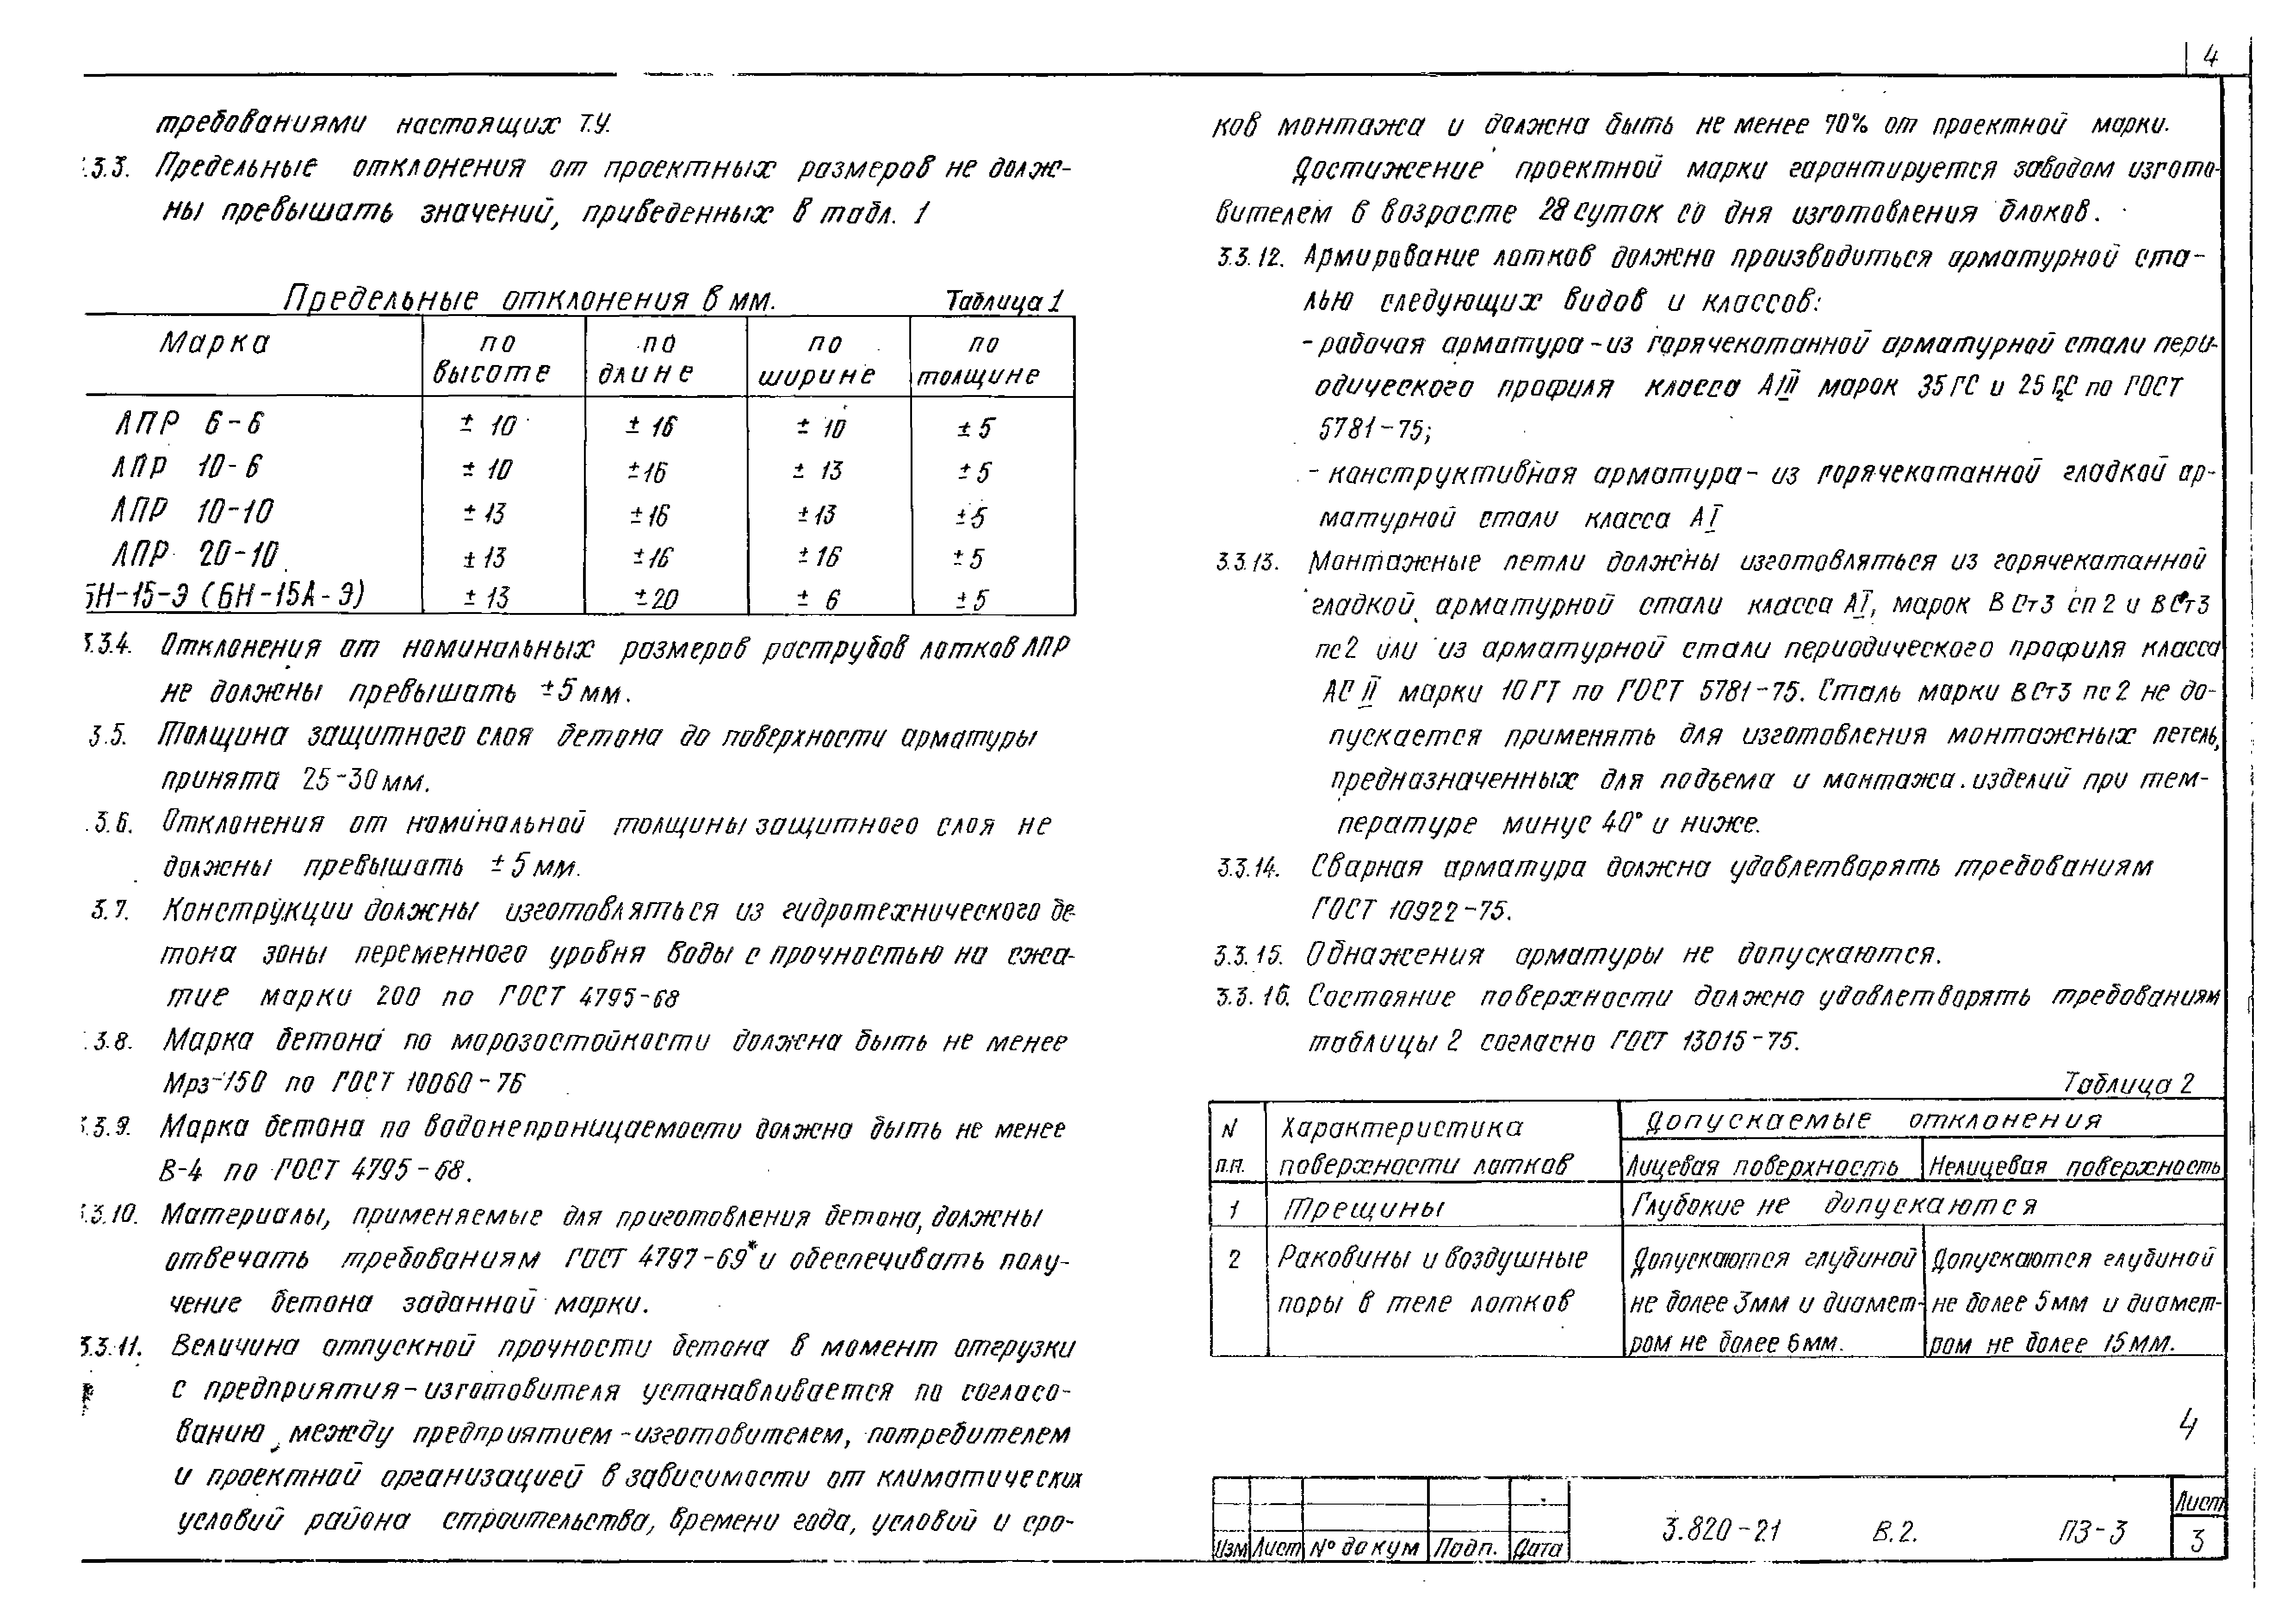 4
требованиями настоящих Т.У.
.3.3. Предельные отклонения от проектных размеров не долж-
ны превышать значений, приведенных в табл. 1
Предельные отклонения в мм. Таблица 1
Марка по высоте по длине по ширине по толщине
ЛПР 6-6 ± 10 ± 16 ± 10 ± 5
ЛПР 10-6 ± 10 ±16 ± 13 ± 5
ЛПР 10-10 ± 13 ± 16 ± 13 ± 5
ЛПР 20-10 ± 13 ± 16 ± 16 ± 5
БН-15-Э (БН-15А-Э) ± 13 ± 20 ± 6 ± 5
3.3.4. Отклонения от номинальных размеров раструбов лотков ЛПР
не должны превышать ±5 мм.
3.5. Толщина защитного слоя бетона до поверхности арматуры
принята 25-30 мм.
.3.6. Отклонения от номинальной толщины защитного слоя не
должны превышать ± 5 мм.
3.7. Конструкции должны изготовляться из гидротехнического бе-
тона зоны переменного уровня воды с прочностью на сжа-
тие марки 200 по ГОСТ 4795-68
.3.8. Марка бетона по морозостойкости должна быть не менее
Мрз-150 по ГОСТ 10060-76
3.3.9. Марка бетона по водонепроницаемости должна быть не менее
В-4 по ГОСТ 4795-68.
3.3.10. Материалы, применяемые для приготовления бетона, должны
отвечать требованиям ГОСТ 4797-69* и обеспечивать полу-
чение бетона заданной марки.
3.3.11. Величина отпускной прочности бетона в момент отгрузки
с предприятия-изготовителя устанавливается по согласо-
ванию между предприятием-изготовителем, потребителем
и проектной организацией в зависимости от климатических
условий района строительства, времени года, условий и сро-
ков монтажа и должна быть не менее 70% от проектной марки.
Достижение проектной марки гарантируется заводом изгото-
вителем в возрасте 28 суток со дня изготовления блоков.
3.3.12. Армирование лотков должно производиться арматурной ста-
лью следующих видов и классов:
- рабочая арматура - из горячекатанной арматурной стали пери-
одического профиля класса АIII марок 35ГС и 25Г2С по ГОСТ
5781-75;
- конструктивная арматура - из горячекатанной гладкой ар-
матурной стали класса АI
3.3.13. Монтажные петли должны изготовляться из горячекатанной
гладкой арматурной стали класса АI, марок ВСт3 сп2 и ВСт3
пс2 или из арматурной стали периодического профиля класса
АС II марки 10ГТ по ГОСТ 5781-75. Сталь марки ВСт3 пс2 не до-
пускается применять для изготовления монтажных петель,
предназначенных для подъема и монтажа изделий при тем-
пературе минус 40° и ниже.
3.3.14. Сварная арматура должна удовлетворять требованиям
ГОСТ 10922-75.
3.3.15. Обнажения арматуры не допускаются.
3.3.16. Состояние поверхности должно удовлетворять требованиям
таблицы 2 согласно ГОСТ 13015-75.
Таблица 2
N п.п. Характеристика поверхности лотков Допускаемые отклонения
Лицевая поверхность Нелицевая поверхность
1 Трещины Глубокие не допускаются
2 Раковины и воздушные Допускаются глубиной Допускаются глубиной
поры в теле лотков не более 3мм и диамет- не более 5мм и диамет-
ром не более 6мм. ром не более 15мм.
4
Изм Лист № докум Подп. Дата
3.820-21 В.2. ПЗ-3
Лист
3